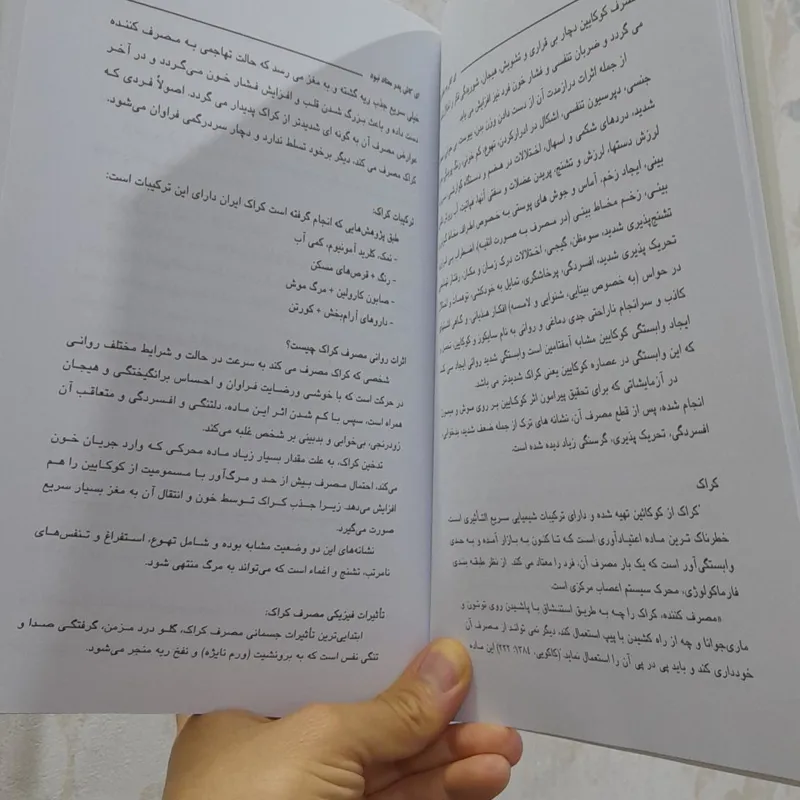 مصرف کوکایین دچار بی قراری و تشویش، هیجان،
می گردد و ضربان تنفسی و فشار خون فرد نیز افزایش می یابد.
از جمله اثرات درازمدت آن از دست دادن وزن بدن، یبوست،
جنسی، دپرسیون تنفسی، اشکال در ادرارکردن، تهوع، کم خونی،
شدید، دردهای شکمی و اسهال، اختلالات در هضم و دستگاه گوارش
لرزش دستها، لرزش و تشنج، پریدن عضلات و سفتی آنها،
بینی، ایجاد زخم، آماس و جوش های پوستی به خصوص اطراف
بینی، زخم مخاط بینی (در مصرف به صورت انفیه)، اضطراب
تشنج‌پذیری شدید، سوءظن، گیجی، اختلالات درک زمان و مکان، رفتار
تحریک پذیری شدید، افسردگی، پرخاشگری، تمایل به خودکشی، توهمات
در حواس (به خصوص بینایی، شنوایی و لامسه) افکار هذیانی و گاهی
کاذب و سرانجام ناراحتی جدی دماغی و روانی به نام سایکوز و کوکایین
ایجاد وابستگی کوکایین مشابه آمفتامین است وابستگی شدید روانی ایجاد می کند
که این وابستگی در عصاره کوکایین یعنی کراک شدیدتر می باشد.
در آزمایشاتی که برای تحقیق پیرامون اثر کوکایین بر روی موش و میمون
انجام شده، پس از قطع مصرف آن، نشانه های ترک از جمله ضعف شدید، بدخوابی،
افسردگی، تحریک پذیری، گرسنگی زیاد دیده شده است.
کراک
کراک از کوکائین تهیه شده و دارای ترکیبات شیمیایی سریع التأثیری است
خطرناک ترین ماده اعتیادآوری است که تا کنون به بازار آمده و به حدی
وابستگی‌آور است که یک بار مصرف آن، فرد را معتاد می کند. از نظر طبقه بندی
فارماکولوژی، محرک سیستم اعصاب مرکزی است.
«مصرف کننده، کراک را چه به طریق استنشاق یا پاشیدن روی توتون و
ماری‌جوانا و چه از راه کشیدن با پیپ استعمال کند، دیگر نمی تواند از مصرف آن
خودداری کند و باید پی در پی آن را استعمال نماید.»(کاکویی، ۱۳۸۴: ۲۲۲) این ماده
خیلی سریع جذب ریه گشته و به مغز می رسد که حالت تهاجمی به مصرف کننده
دست داده و باعث بزرگ شدن قلب و افزایش فشار خون می‌گردد و در آخر
عوارض مصرف آن به گونه ای شدیدتر از کراک پدیدار می گردد. اصولاً فردی که
کراک مصرف می کند، دیگر برخود تسلط ندارد و دچار سردرگمی فراوان می‌شود.
ترکیبات کراک:
طبق پژوهش‌هایی که انجام گرفته است کراک ایران دارای این ترکیبات است:
- نمک، کلرید آمونیوم، کمی آب
- رنگ + قرص‌های مسکن
- صابون کارولین + مرگ موش
- داروهای آرام‌بخش + کورتن
اثرات روانی مصرف کراک چیست؟
شخصی که کراک مصرف می کند به سرعت در حالت و شرایط مختلف روانی
در حرکت است که با خوشی ورضایت فراوان و احساس برانگیختگی و هیجان
همراه است، سپس با کم شدن اثر این ماده، دلتنگی و افسردگی و متعاقب آن
زودرنجی، بی‌خوابی و بدبینی بر شخص غلبه می‌کند.
تدخین کراک، به علت مقدار بسیار زیاد ماده محرکی که وارد جریان خون
می‌کند، احتمال مصرف بیش از حد و مرگ‌آور با مسمومیت از کوکایین را هم
افزایش می‌دهد. زیرا جذب کراک توسط خون و انتقال آن به مغز بسیار سریع
صورت می‌گیرد.
نشانه‌های این دو وضعیت مشابه بوده و شامل تهوع، استفراغ و تنفس‌های
نامرتب، تشنج و اغماء است که می‌تواند به مرگ منتهی شود.
تأثیرات فیزیکی مصرف کراک:
ابتدایی‌ترین تأثیرات جسمانی مصرف کراک، گلو درد مزمن، گرفتگی صدا و
تنگی نفس است که به برونشیت (ورم نایژه) و نفخ ریه منجر می‌شود.